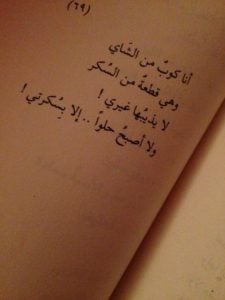 (٦٩)
أنا كوبٌ من الشاي
وهي قطعةٌ من السكر
لا يذيبُها غيري !
ولا أصبحُ حلواً .. إلا بِسُكرتي !